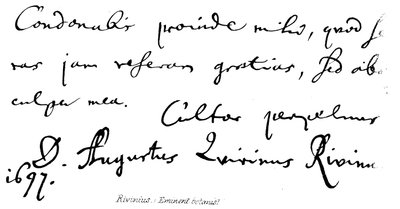 Condonabis proinde mihi, quod se
ras jam referam gratias, sed abs
culpa mea.
Cultor perpetuus
D. Augustus Quirinus Rivinu
1697.
Rivinius, Eminent botanist